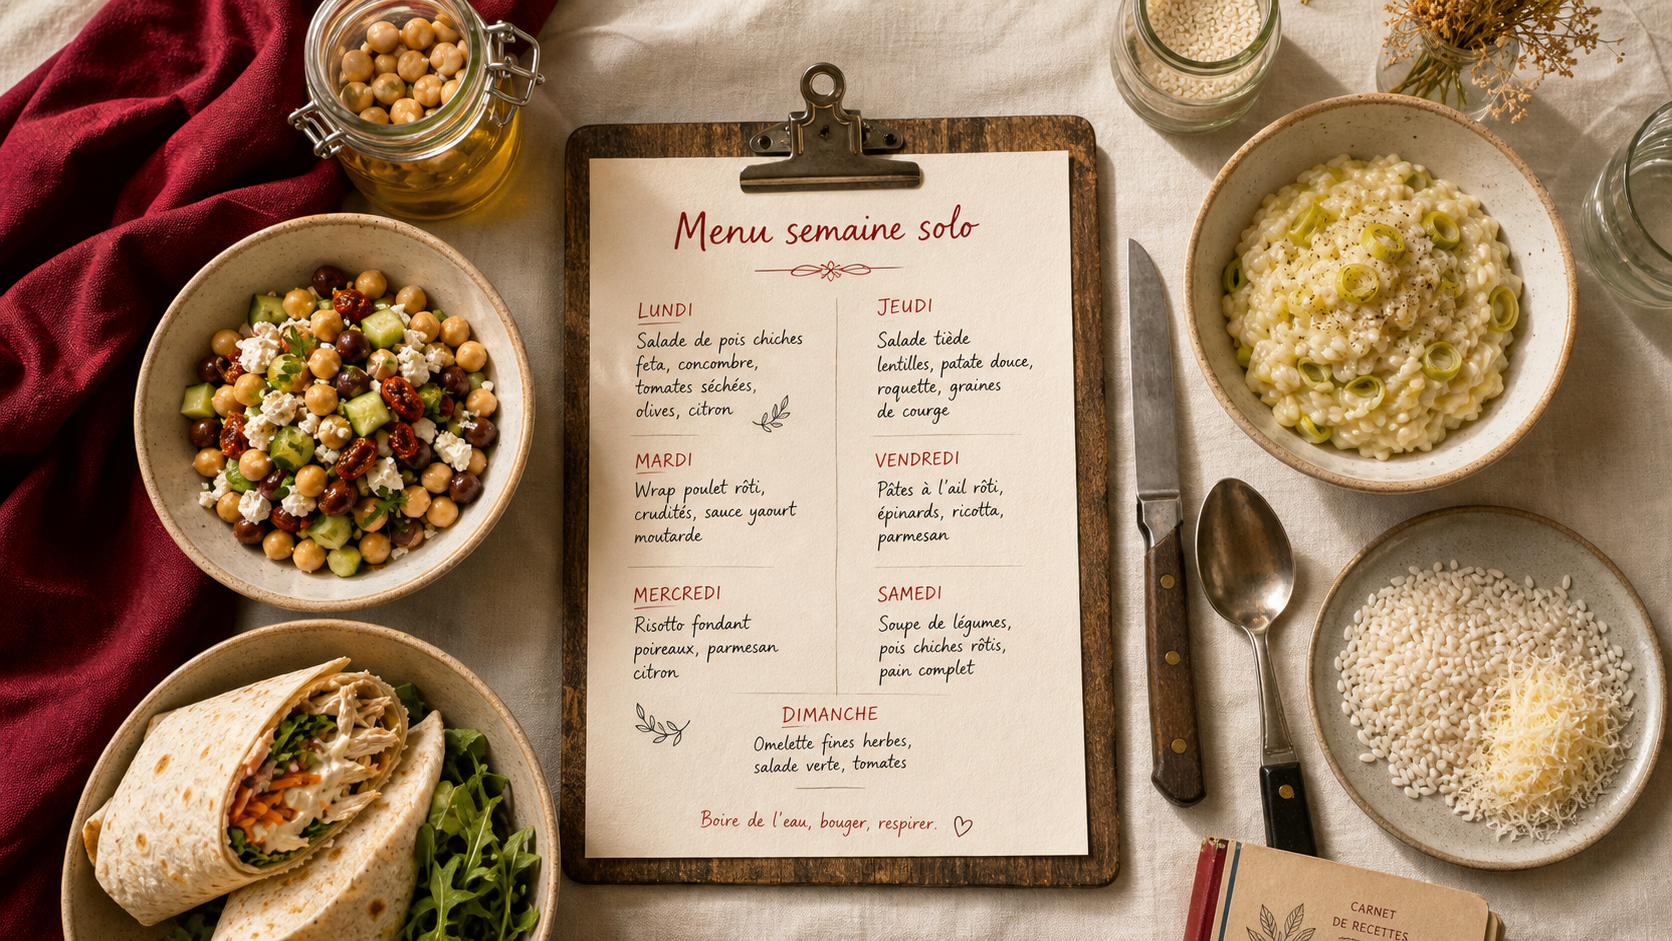 Menu semaine solo
LUNDI
Salade de pois chiches
feta, concombre,
tomates séchées,
olives, citron
MARDI
Wrap poulet rôti,
crudités, sauce yaourt
moutarde
MERCREDI
Risotto fondant
poireaux, parmesan
citron
JEUDI
Salade tiède
lentilles, patate douce,
roquette, graines
de courge
VENDREDI
Pâtes à l'ail rôti,
épinards, ricotta,
parmesan
SAMEDI
Soupe de légumes,
pois chiches rôtis,
pain complet
DIMANCHE
Omelette fines herbes,
salade verte, tomates
Boire de l'eau, bouger, respirer.
CARNET
DE RECETTES